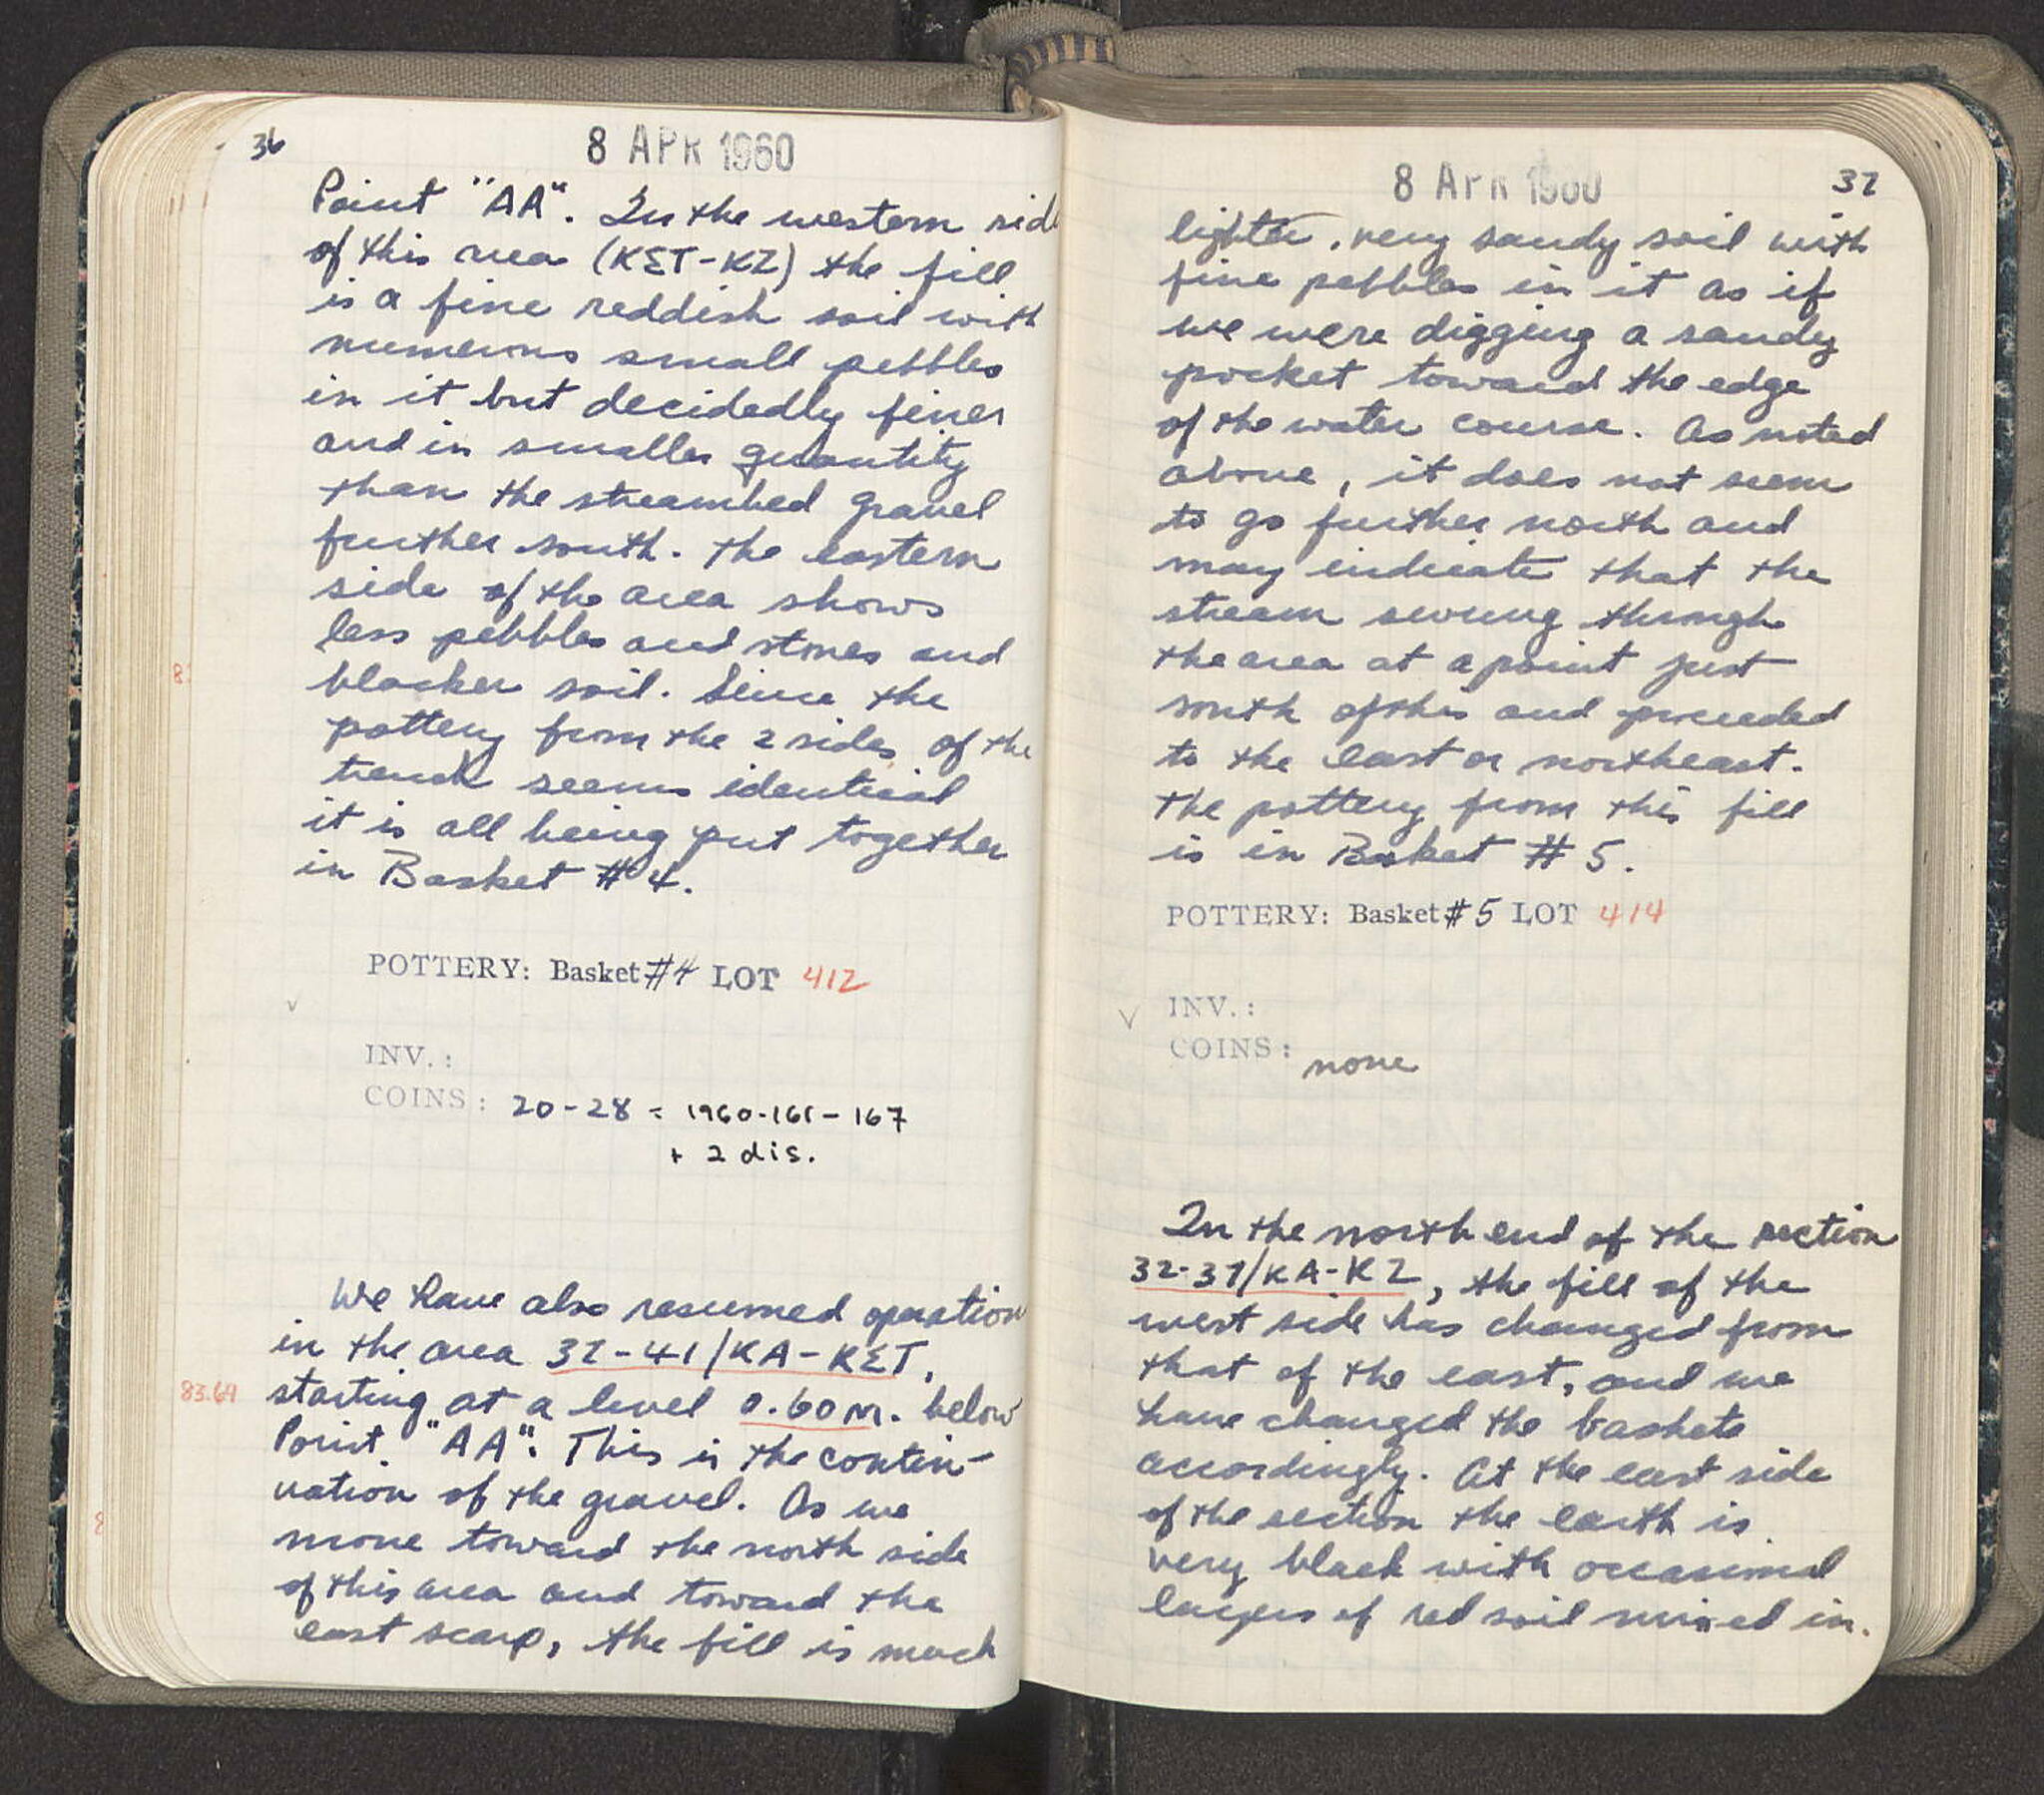 36
8 APR 1960
Point "AA". In the western side
of this area (KΣT-KZ) the fill
is a fine reddish soil with
numerous small pebbles
in it but decidedly finer
and in smaller quantity
than the streambed gravel
further south. The eastern
side of the area shows
less pebbles and stones and
blacker soil. Since the
pottery from the 2 sides of the
trench seems identical
it is all being put together
in Basket #4.
POTTERY: Basket #4 LOT 412
INV.:
COINS: 20-28 = 1960-161-167
+ 2 dis.
We have also resumed operation
in the area 32-41/KA-KΣT,
83.64 starting at a level 0.60 m. below
Point "AA". This is the contin-
uation of the gravel. As we
move toward the north side
of this area and toward the
east scarp, the fill is much
8 APR 1960
37
lighter, very sandy soil with
fine pebbles in it as if
we were digging a sandy
pocket toward the edge
of the water course. As noted
above, it does not seem
to go further north and
may indicate that the
stream swung through
the area at a point just
south of this and proceeded
to the east or northeast.
The pottery from this fill
is in Basket #5.
POTTERY: Basket #5 LOT 414
INV.:
COINS: none
In the north end of the section
32-37/KA-KZ, the fill of the
west side has changed from
that of the east, and we
have changed the baskets
accordingly. At the east side
of the section the earth is
very black with occasional
layers of red soil mixed in.